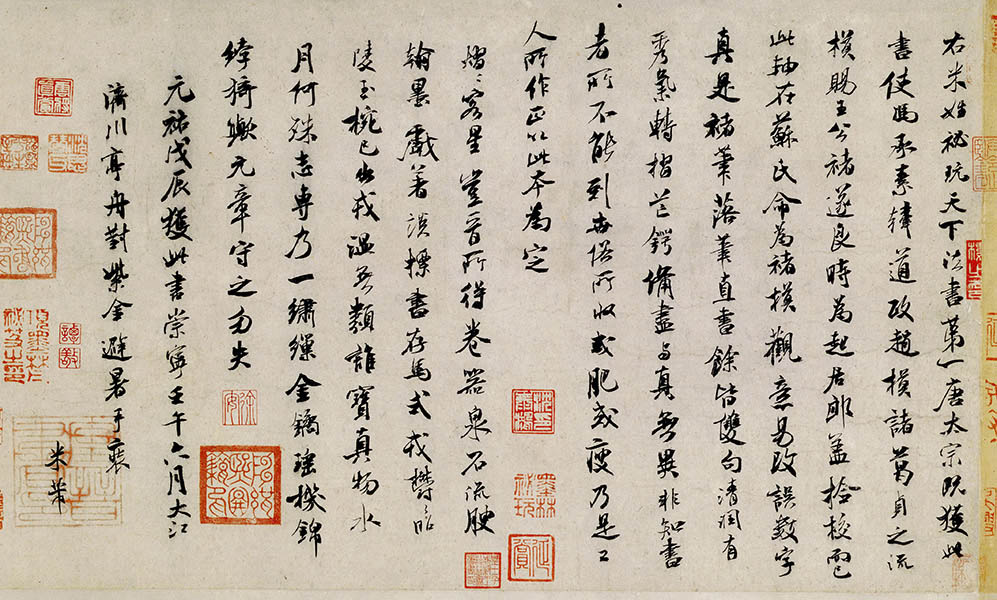 右米姓秘玩天下法書第一唐太宗既獲此
書使馮承素韓道政趙模諸葛貞之流
模賜王公褚遂良時為起居郎蓋撿校而已
此軸在蘇氏命為褚模觀意易改誤數字
真是褚筆落筆直書餘皆雙勾清潤有
秀氣轉摺芒鍔備盡與真無異非知書
者所不能到世俗所收或肥或瘦乃是工
人所作正以此本為定
熠熠客星豈晉所得卷器泉石流腴
翰墨戲著談標書存焉式鬱鬱昭
陵玉椀已出戎溫無類誰寶真物水
月何殊志專乃一繡繅金鐍瑤機錦
綍猗歟元章守之勿失
元祐戊辰獲此書崇寧壬午六月大江
濟川亭舟對紫金避暑手裝
米芾